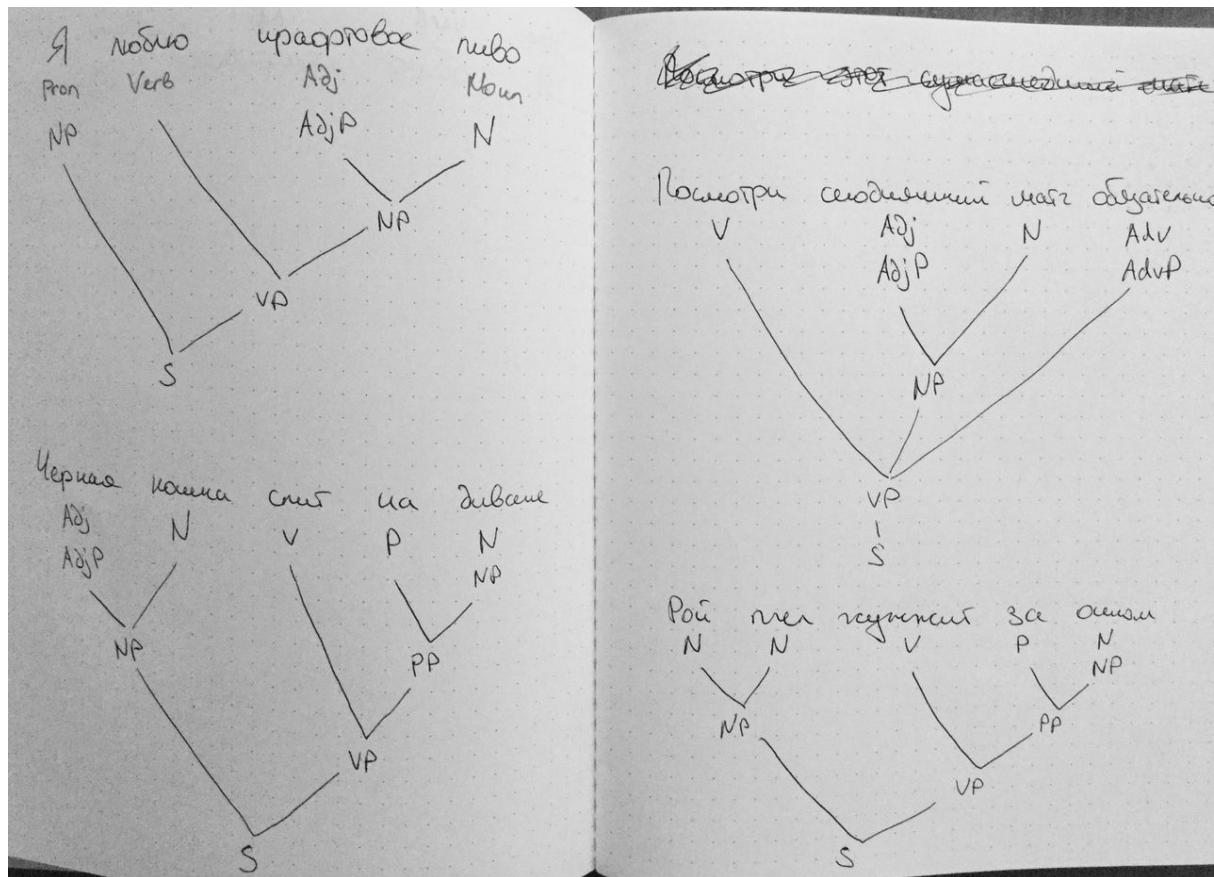 Я люблю крафтовое пиво
Pron Verb Adj Noun
NP AdjP N
NP
VP
S
Черная кошка спит на диване
Adj N V P N
AdjP NP
NP PP
VP
S
Посмотри этот сумасшедший матч
Посмотри сегодняшний матч обязательно
V Adj N Adv
AdjP AdvP
NP
VP
S
Рой пчел жужжит за окном
N N V P N
NP
NP PP
VP
S